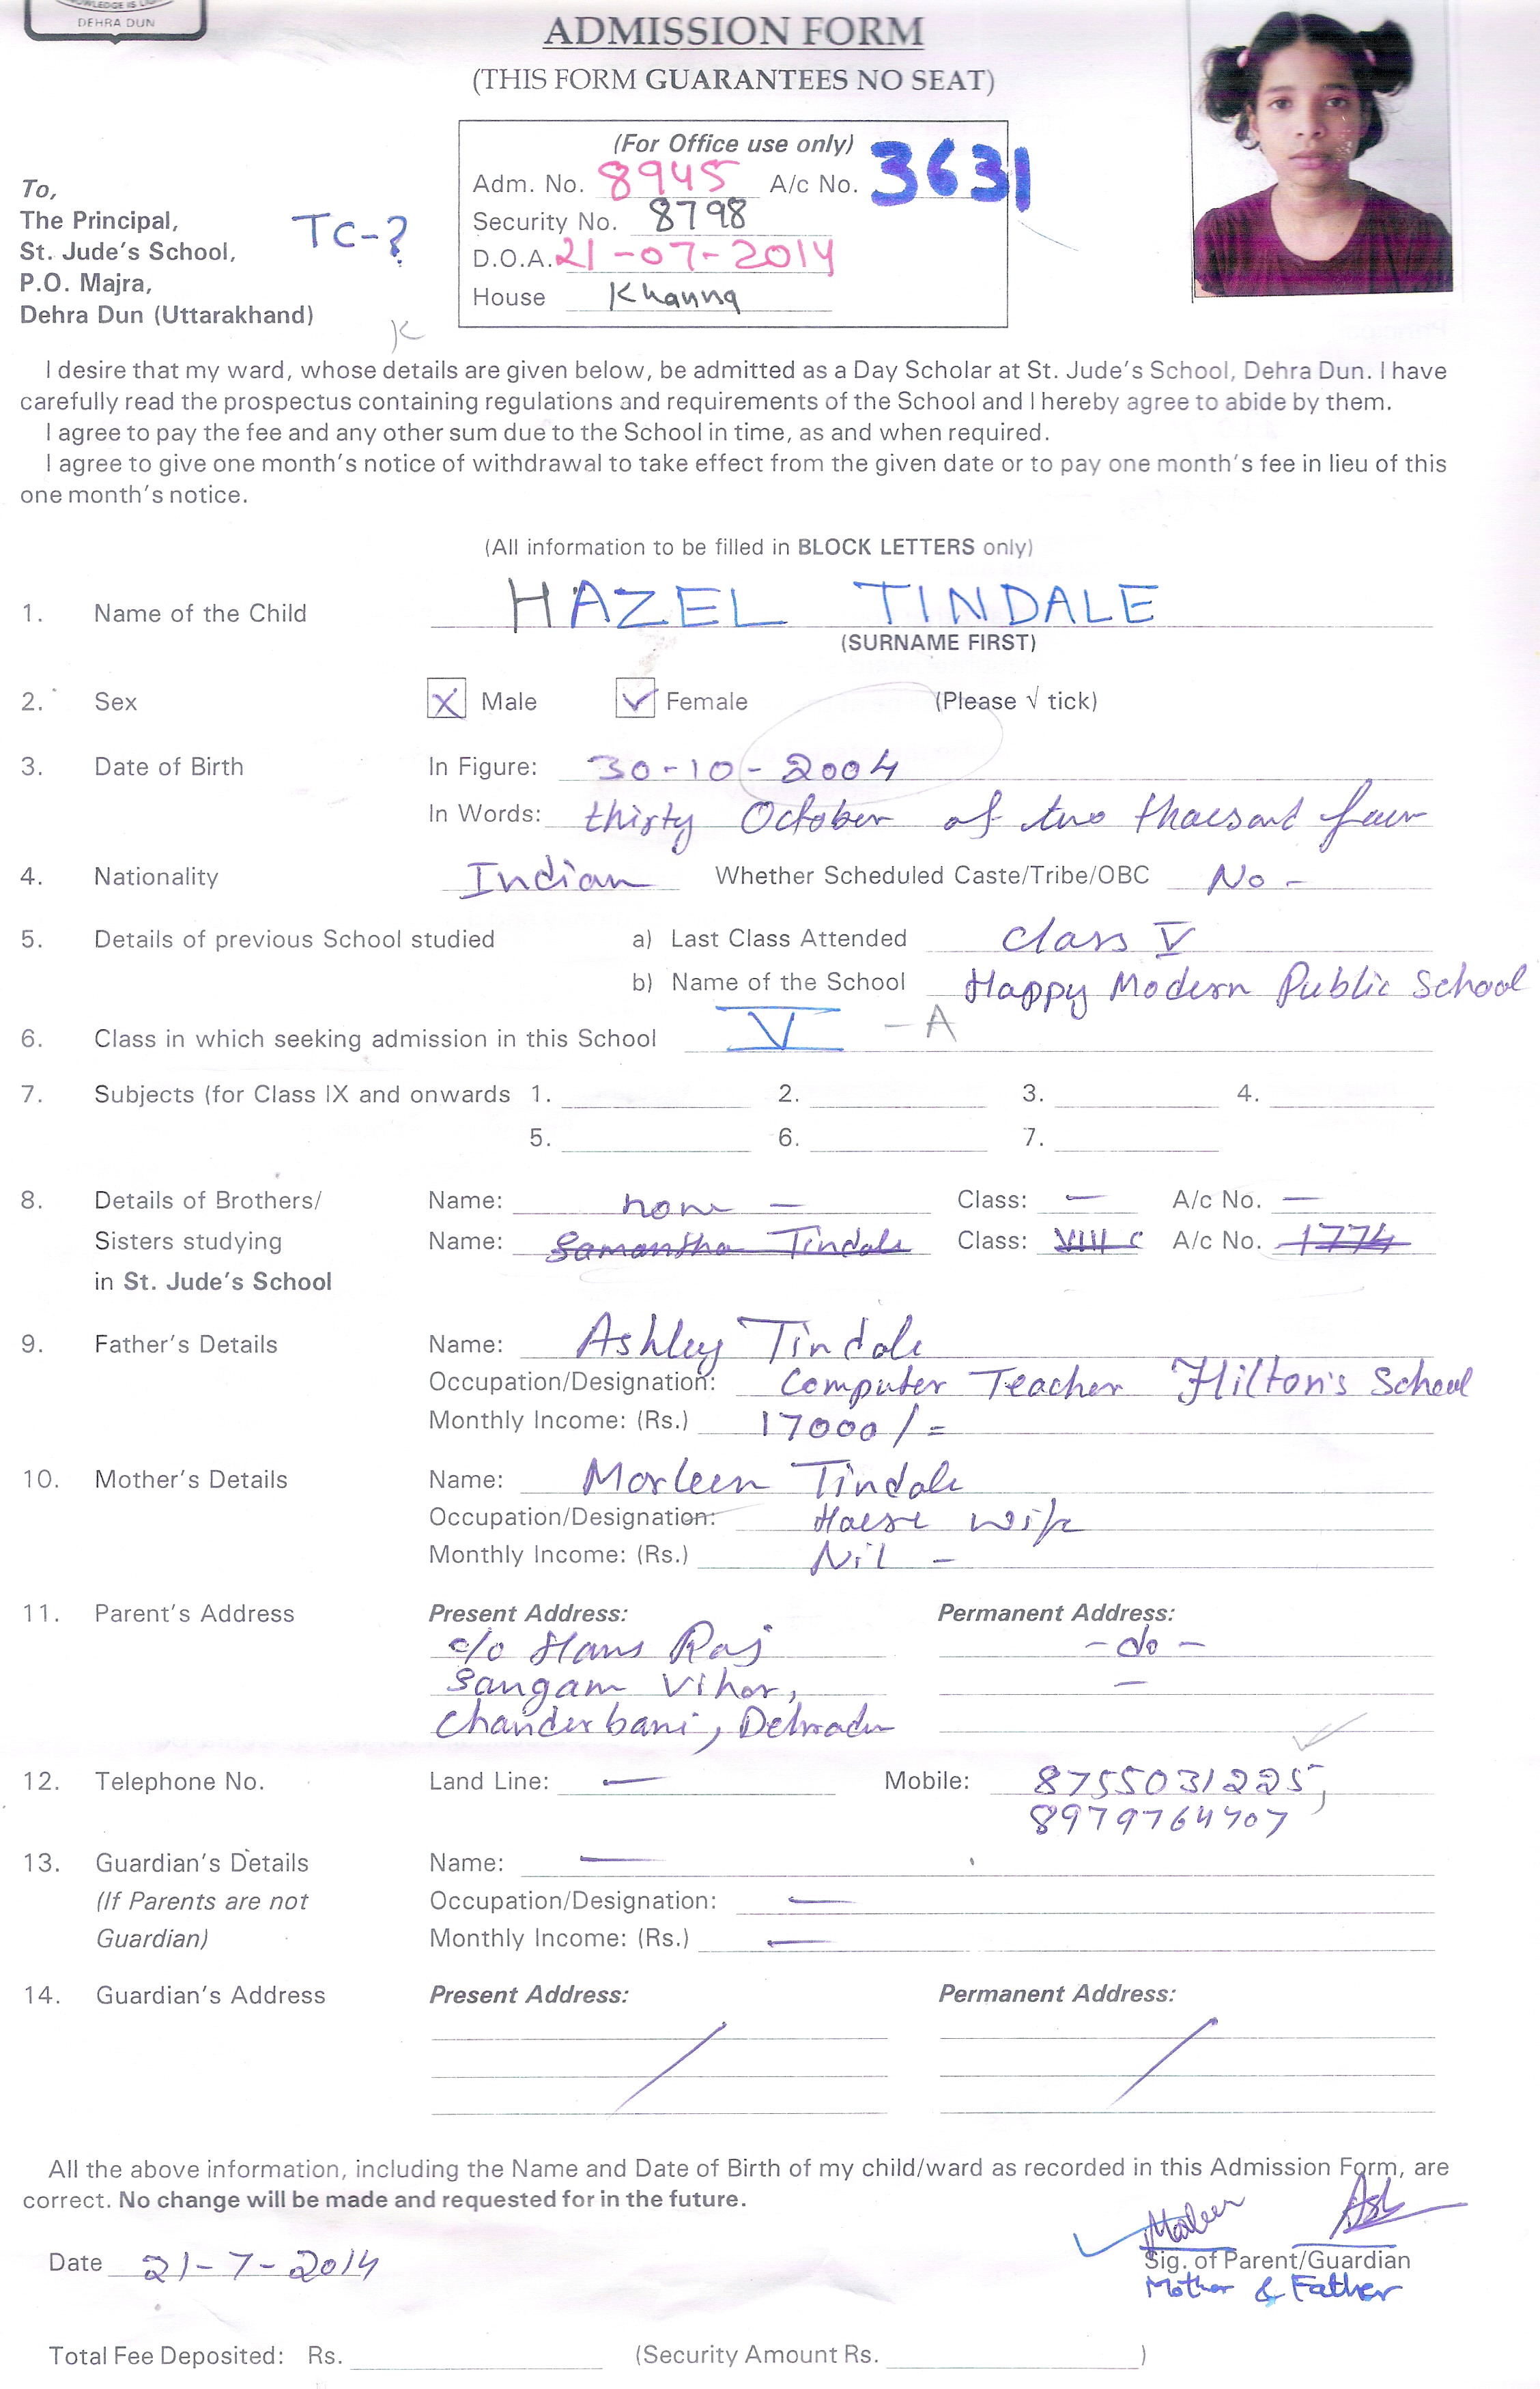 DEHRA DUN
ADMISSION FORM
(THIS FORM GUARANTEES NO SEAT)
(For Office use only)
Adm. No. 8945 A/c No. 3631
Security No. 8798
D.O.A. 21-07-2014
House Khanna
To,
The Principal,
St. Jude's School,
P.O. Majra,
Dehra Dun (Uttarakhand)
TC-?
K
I desire that my ward, whose details are given below, be admitted as a Day Scholar at St. Jude's School, Dehra Dun. I have
carefully read the prospectus containing regulations and requirements of the School and I hereby agree to abide by them.
I agree to pay the fee and any other sum due to the School in time, as and when required.
I agree to give one month's notice of withdrawal to take effect from the given date or to pay one month's fee in lieu of this
one month's notice.
(All information to be filled in BLOCK LETTERS only)
1. Name of the Child HAZEL TINDALE
(SURNAME FIRST)
2. Sex X Male ✓ Female (Please √ tick)
3. Date of Birth In Figure: 30-10-2004
In Words: thirty October of two thousand four
4. Nationality Indian Whether Scheduled Caste/Tribe/OBC No -
5. Details of previous School studied a) Last Class Attended Class V
b) Name of the School Happy Modern Public School
6. Class in which seeking admission in this School V - A
7. Subjects (for Class IX and onwards 1. 2. 3. 4.
5. 6. 7.
8. Details of Brothers/ Name: none — Class: — A/c No. —
Sisters studying Name: Samantha Tindale Class: VIII C A/c No. 1774
in St. Jude's School
9. Father's Details Name: Ashley Tindale
Occupation/Designation: Computer Teacher Hilton's School
Monthly Income: (Rs.) 17000/=
10. Mother's Details Name: Morleen Tindale
Occupation/Designation: House wife
Monthly Income: (Rs.) Nil -
11. Parent's Address Present Address: Permanent Address:
c/o Hans Raj -do-
Sangam Vihar, —
Chanderbani, Dehradun
12. Telephone No. Land Line: — Mobile: 8755031225,
8979764707
13. Guardian's Details Name: —
(If Parents are not Occupation/Designation: —
Guardian) Monthly Income: (Rs.) —
14. Guardian's Address Present Address: Permanent Address:
All the above information, including the Name and Date of Birth of my child/ward as recorded in this Admission Form, are
correct. No change will be made and requested for in the future.
Date 21-7-2014
Sig. of Parent/Guardian
Mother & Father
Total Fee Deposited: Rs. (Security Amount Rs. )